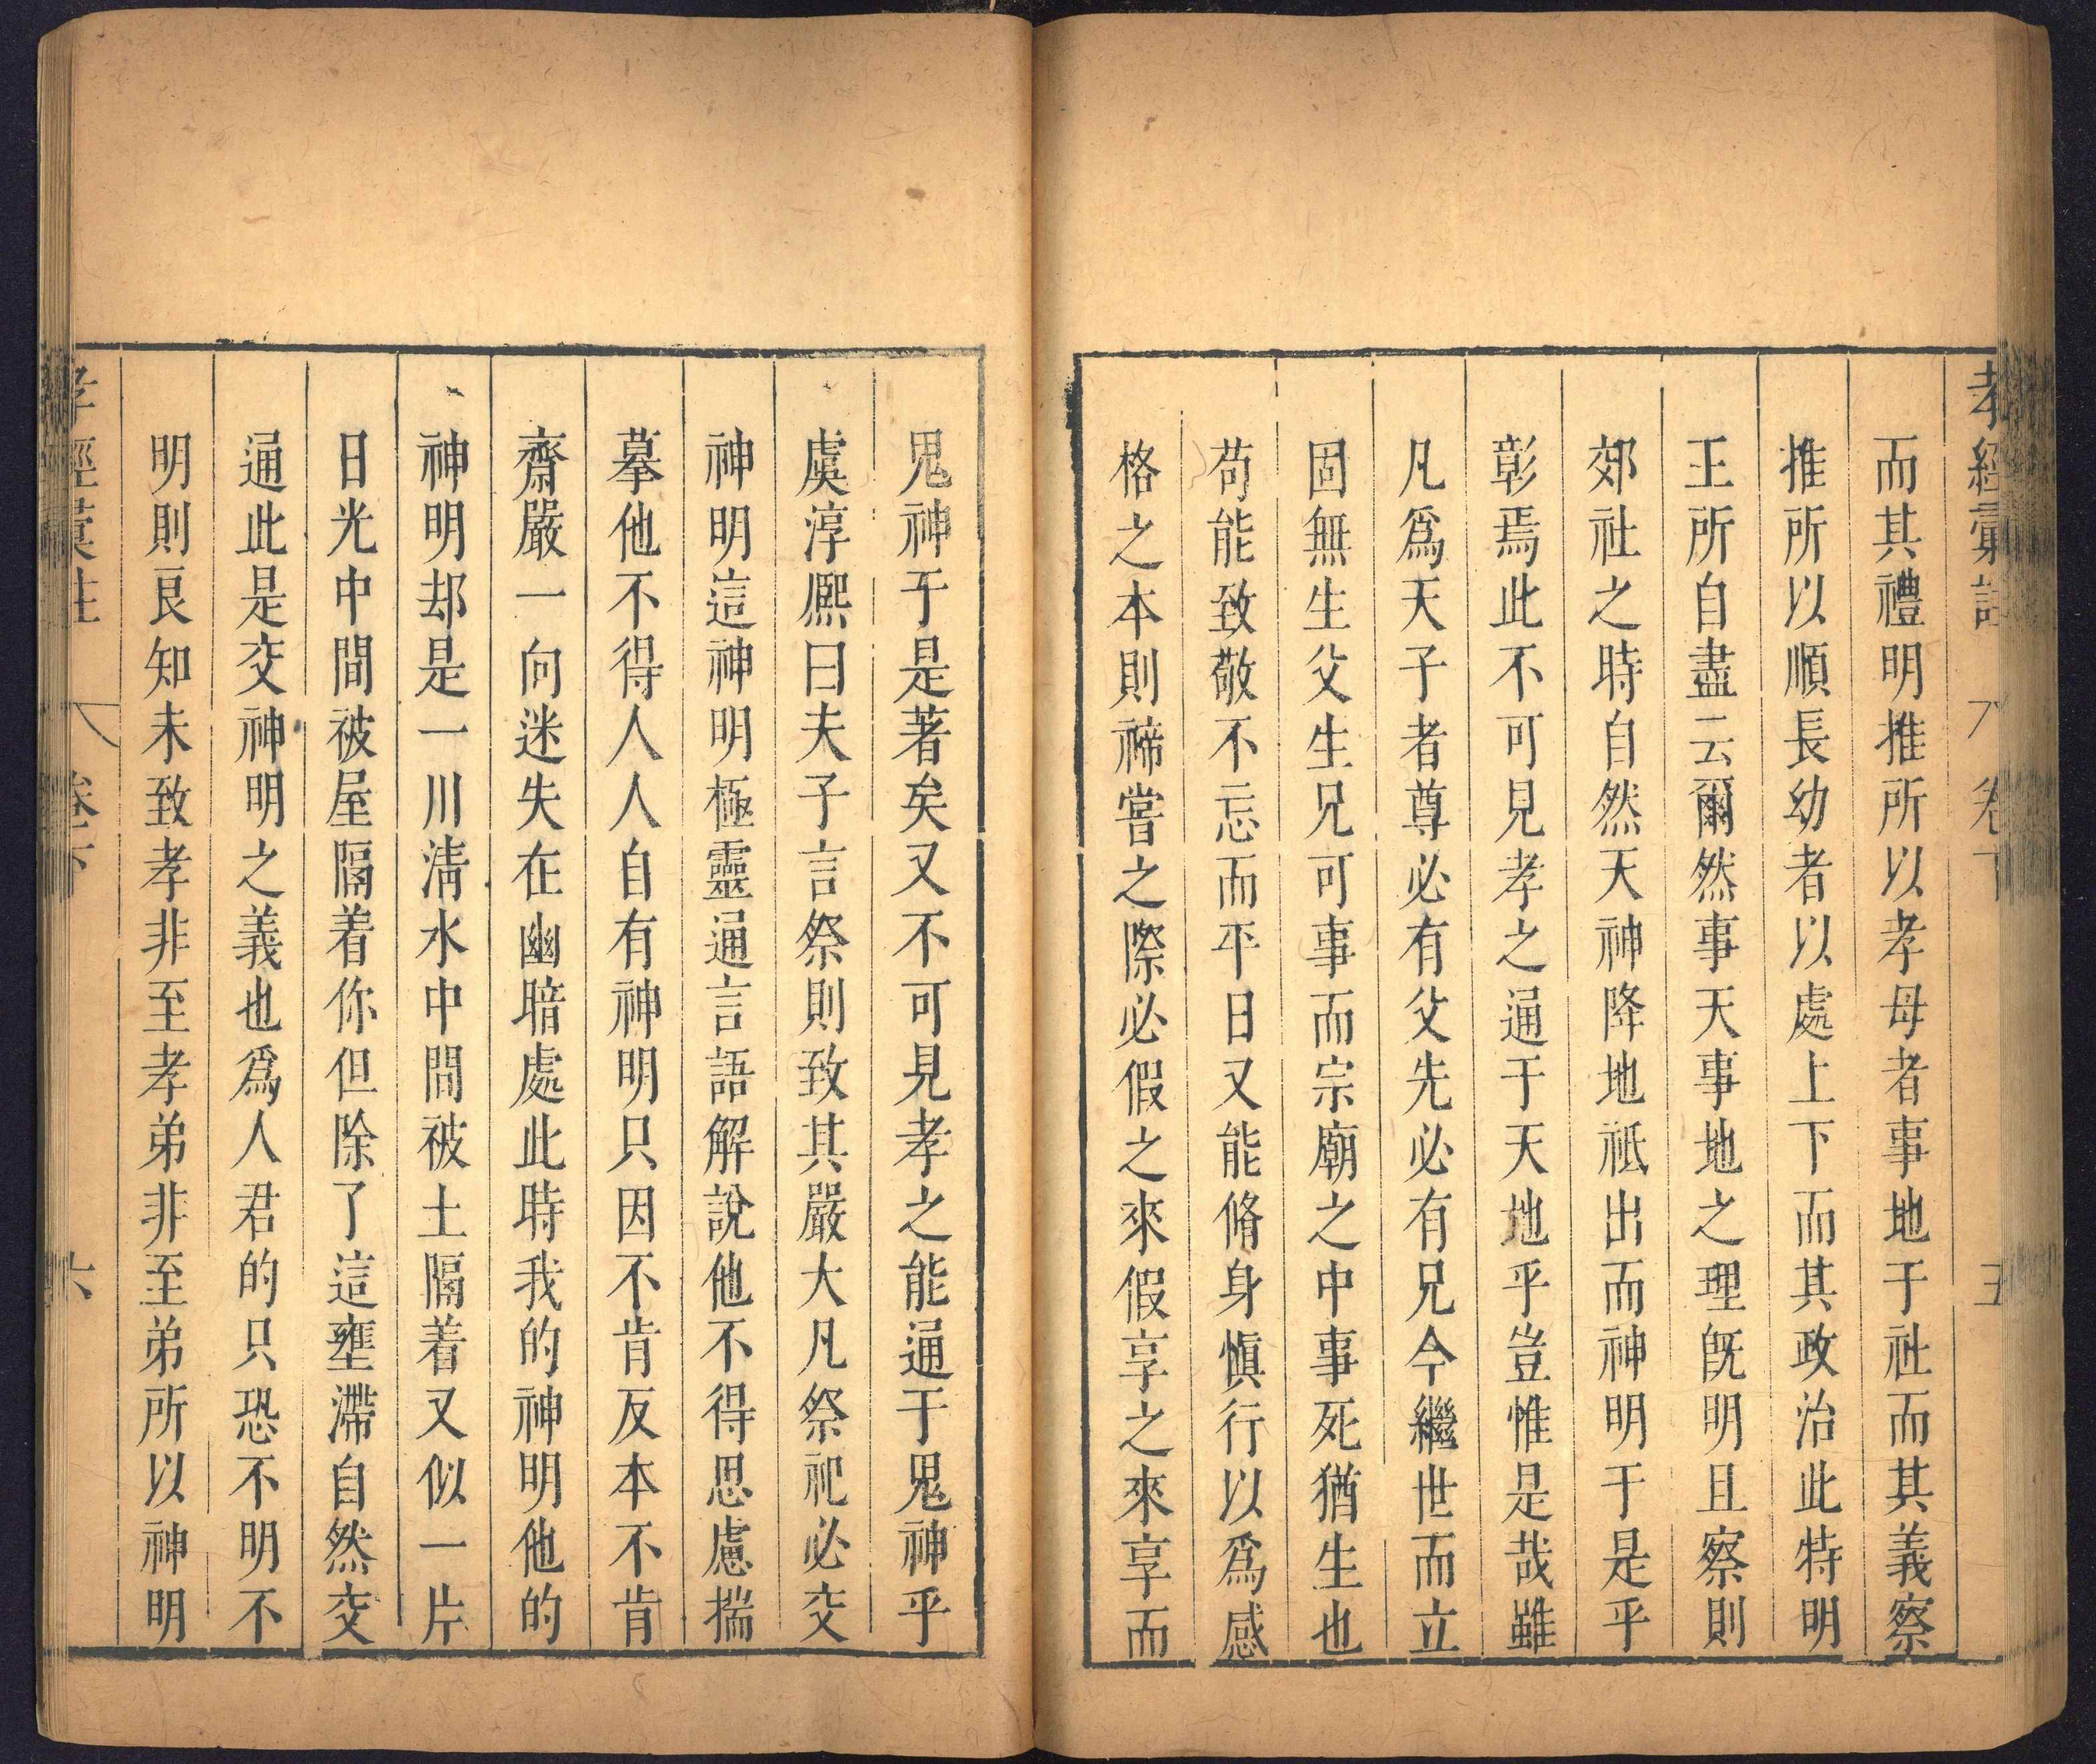 孝經彙註 卷下 五
而其禮明推所以孝母者事地于社而其義察
推所以順長幼者以處上下而其政治此特明
王所自盡云爾然事天事地之理旣明且察則
郊社之時自然天神降地祗出而神明于是乎
彰焉此不可見孝之通于天地乎豈惟是哉雖
凡爲天子者尊必有父先必有兄今繼世而立
固無生父生兄可事而宗廟之中事死猶生也
苟能致敬不忘而平日又能脩身愼行以爲感
格之本則禘嘗之際必假之來假享之來享而
鬼神于是著矣又不可見孝之能通于鬼神乎
虞淳熈曰夫子言祭則致其嚴大凡祭祀必交
神明這神明極靈通言語解說他不得思慮揣
摹他不得人人自有神明只因不肯反本不肯
齋嚴一向迷失在幽暗處此時我的神明他的
神明却是一川淸水中間被土隔着又似一片
日光中間被屋隔着你但除了這壅滯自然交
通此是交神明之義也爲人君的只恐不明不
明則良知未致孝非至孝弟非至弟所以神明
孝經彙註 卷下 六